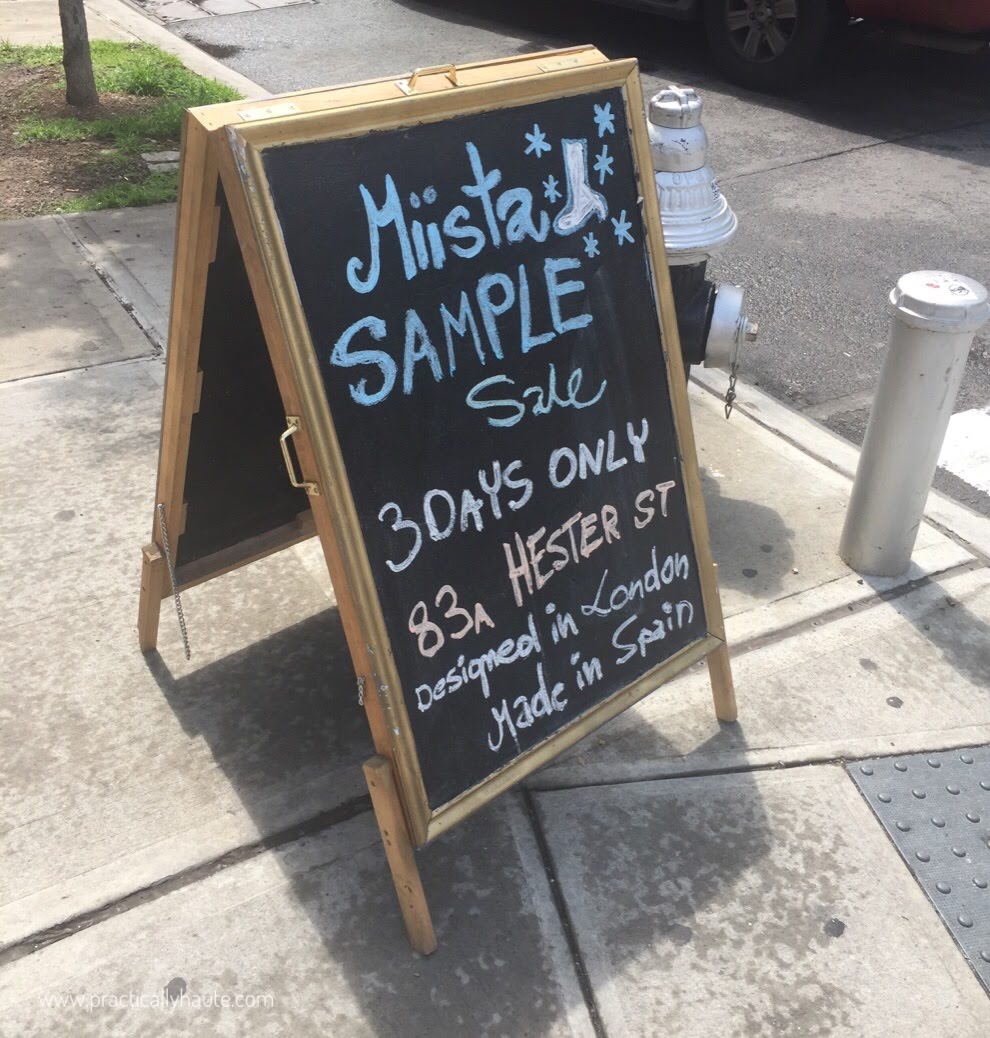 Miista
SAMPLE
Sale
3 DAYS ONLY
83A HESTER ST
Designed in London
Made in Spain
www.practicallyhaute.com